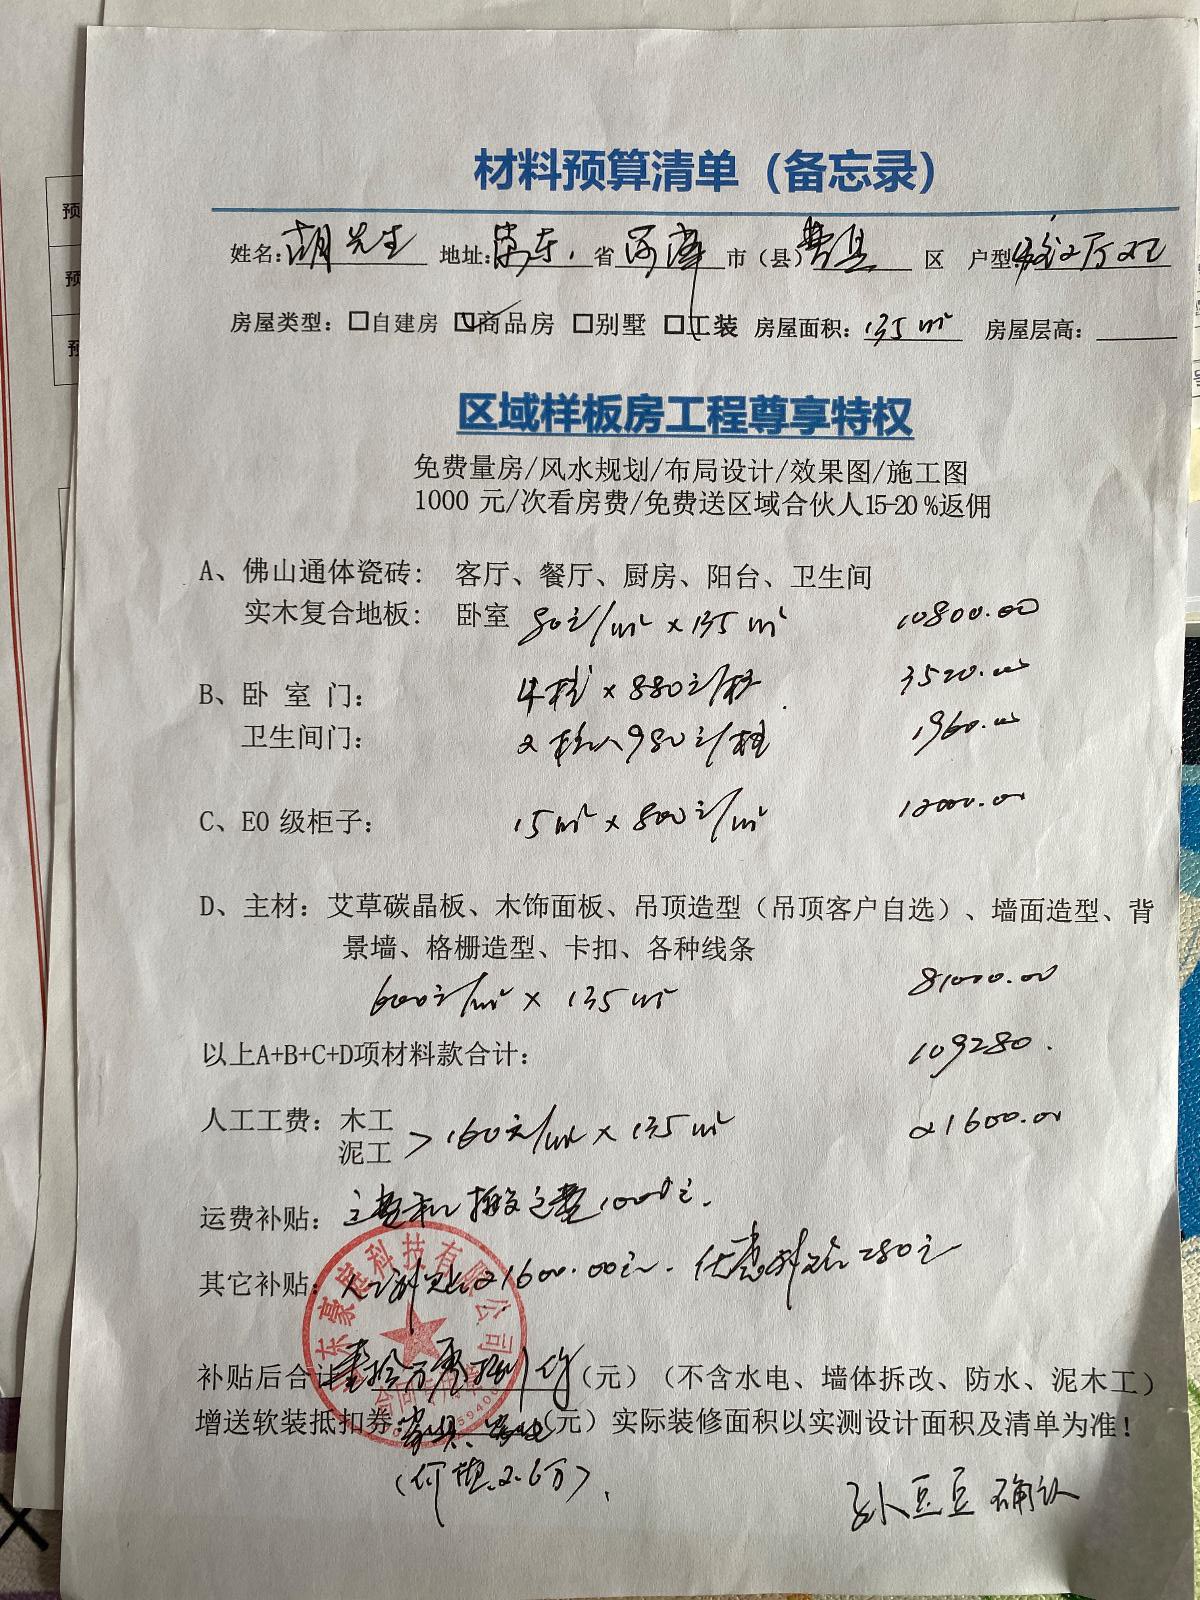 材料预算清单（备忘录）
姓名:胡先生 地址: 省 市（县）费县 区 户型 2厅2卫
房屋类型：□自建房 ☑商品房 □别墅 □工装 房屋面积：135m² 房屋层高：
区域样板房工程尊享特权
免费量房/风水规划/布局设计/效果图/施工图
1000 元/次看房费/免费送区域合伙人15-20%返佣
A、佛山通体瓷砖： 客厅、餐厅、厨房、阳台、卫生间
实木复合地板： 卧室 80元/m² × 135m² 10800.00
B、卧 室 门： 4樘 × 880元/樘 3520.00
卫生间门： 2樘×980元/樘 1960.00
C、E0 级柜子： 15m² × 800元/m² 12000.00
D、主材：艾草碳晶板、木饰面板、吊顶造型（吊顶客户自选）、墙面造型、背
景墙、格栅造型、卡扣、各种线条
600元/m² × 135m² 81000.00
以上A+B+C+D项材料款合计： 109280.
人工工费：木工
泥工 > 160元/m² × 135m² 21600.00
运费补贴：运费和搬运费1000元.
其它补贴：人工补贴21600.00元. 优惠 280元
补贴后合计 （元）（不含水电、墙体拆改、防水、泥木工）
增送软装抵扣券家具、家电（元）实际装修面积以实测设计面积及清单为准！
（价值2.6万）.
孙豆豆 确认
东豪宸科技有限公司
预
预
预